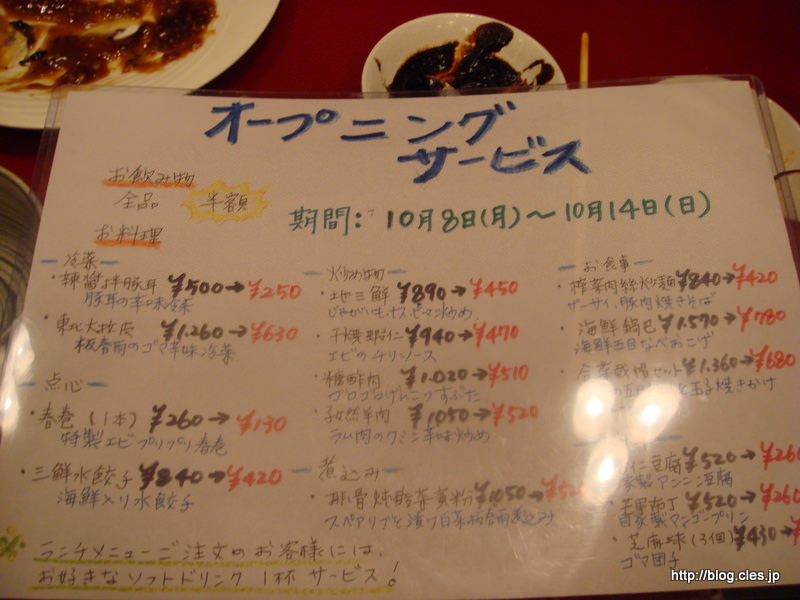 オープニング
サービス
お飲み物
全品 半額
期間: 10月8日(月)～10月14日(日)
お料理
冷菜
・辣醤拌豚耳 ¥500→¥250
豚耳の辛味冷菜
・東北大拉皮 ¥1.260→¥630
板春雨のゴマ辛味冷菜
点心
・春巻(1本) ¥260→¥130
特製エビプリプリ春巻
・三鮮水餃子 ¥840→¥420
海鮮入り水餃子
炒め物
・地三鮮 ¥890→¥450
じゃがいもナスピーマン炒め
・干焼蝦仁 ¥940→¥470
エビのチリソース
・糖酢肉 ¥1.020→¥510
ゴロゴロげんこつすぶた
・孜然羊肉 ¥1050→¥520
ラム肉のクミン辛味炒め
煮込み
・排骨炖酸菜寛粉 ¥1050→¥52
スペアリブと漬け白菜板春雨煮込み
お食事
・搾菜肉絲炒麺 ¥840→¥420
ザーサイ、豚肉焼きそば
・海鮮鍋巴 ¥1.570→¥780
海鮮五目なべおこげ
・合菜戴帽セット ¥1.360→¥680
玉子焼きかけ
仁豆腐 ¥520→¥260
自家製アンニン豆腐
芒果布丁 ¥520→¥260
自家製マンゴープリン
・芝麻球(3個) ¥430→¥
ゴマ団子
ランチメニューご注文のお客様には、
お好きなソフトドリンク1杯サービス!
http://blog.cles.jp